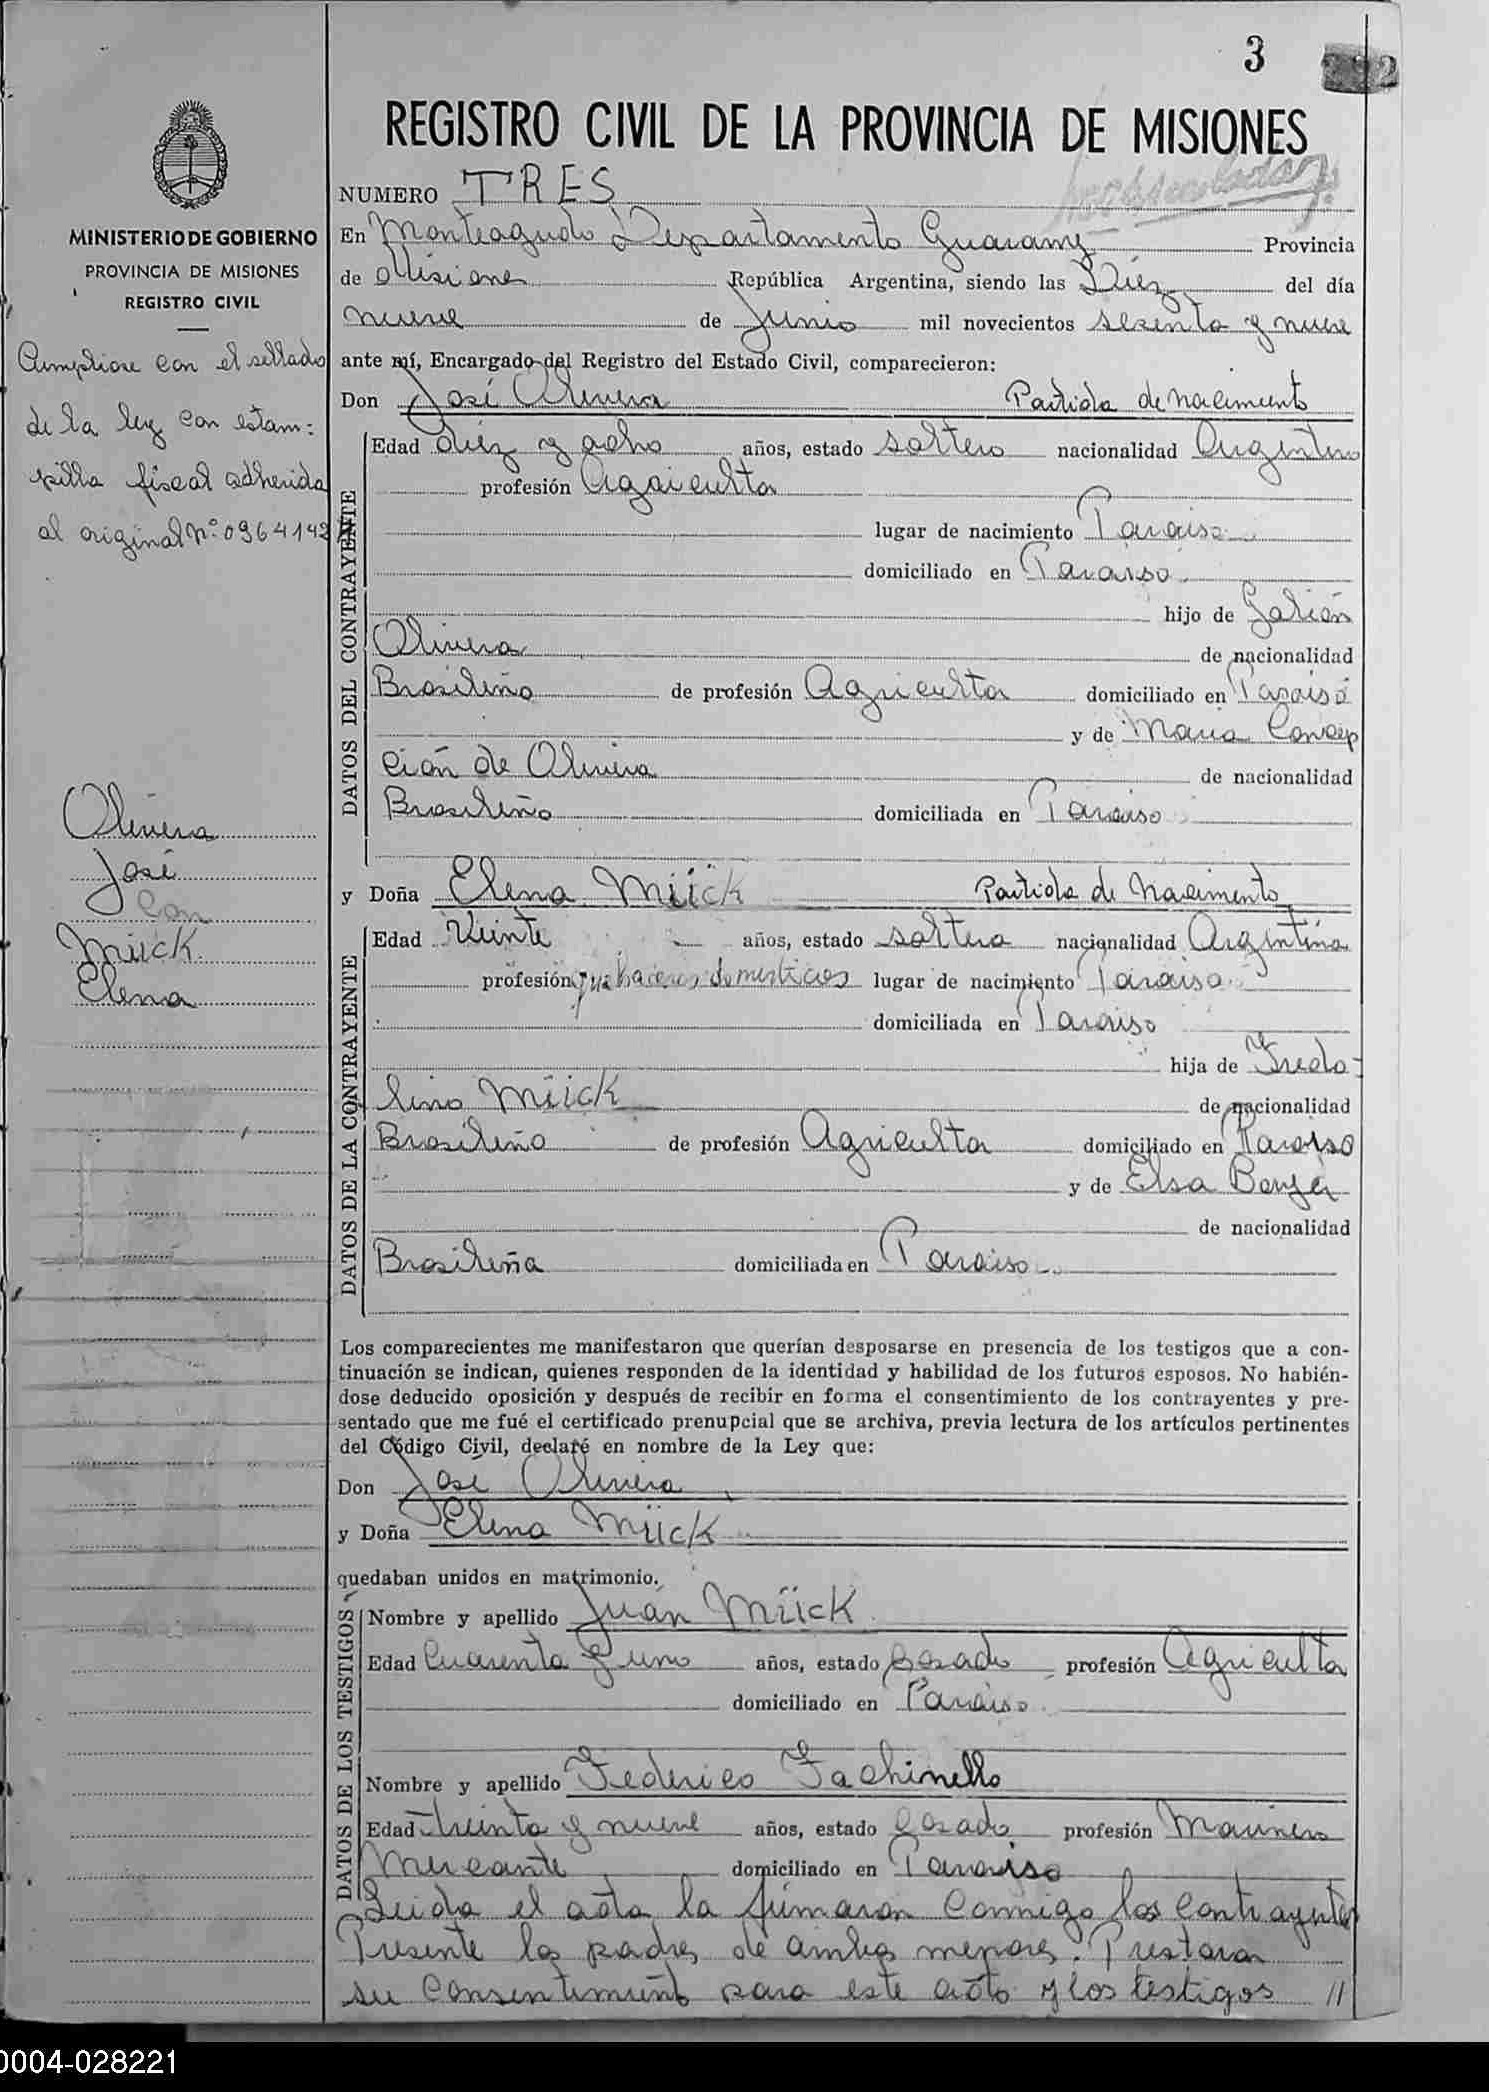 3
REGISTRO CIVIL DE LA PROVINCIA DE MISIONES
MINISTERIO DE GOBIERNO
PROVINCIA DE MISIONES
REGISTRO CIVIL
Cumpliose con el sellado
de la ley con estam=
pilla fiscal adherida
al original Nº 0964142
Olivera
José
Con
Miick
Elena
NUMERO TRES
En Monteagudo Departamento Guarany Provincia
de Misiones República Argentina, siendo las Diez del día
nueve de Junio mil novecientos sesenta y nueve
ante mí, Encargado del Registro del Estado Civil, comparecieron:
Don José Olivera Partida de Nacimiento
DATOS DEL CONTRAYENTE
Edad diez y ocho años, estado soltero nacionalidad Argentino
profesión Agricultor
lugar de nacimiento Paraiso
domiciliado en Paraiso
hijo de
Olivera de nacionalidad
Brasileño de profesión Agricultor domiciliado en Paraiso
y de Maria Concep
ción de Olivera de nacionalidad
Brasileño domiciliada en Paraiso
y Doña Elena Miick Partida de Nacimento
DATOS DE LA CONTRAYENTE
Edad Veinte años, estado soltera nacionalidad Argentina
profesión quehaceres domesticos lugar de nacimiento Paraiso
domiciliada en Paraiso
hija de Fredo-
lino Miick de nacionalidad
Brasileño de profesión Agricultor domiciliado en Paraiso
y de Elsa
de nacionalidad
Brasileña domiciliada en Paraiso
Los comparecientes me manifestaron que querían desposarse en presencia de los testigos que a con-
tinuación se indican, quienes responden de la identidad y habilidad de los futuros esposos. No habién-
dose deducido oposición y después de recibir en forma el consentimiento de los contrayentes y pre-
sentado que me fué el certificado prenupcial que se archiva, previa lectura de los artículos pertinentes
del Código Civil, declaré en nombre de la Ley que:
Don José Olivera
y Doña Elena Miick
quedaban unidos en matrimonio.
DATOS DE LOS TESTIGOS
Nombre y apellido Juan Miick
Edad Cuarenta y uno años, estado Casado profesión Agricultor
domiciliado en Paraiso
Nombre y apellido Federico Fachinello
Edad treinta y nueve años, estado Casado profesión Marinero
Mercante domiciliado en Paraiso
Leida el acta la firmaron Conmigo los Contrayentes
Presente los padres de ambos menores. Prestaron
su Consentimiento para este acto y los testigos //
0004-028221